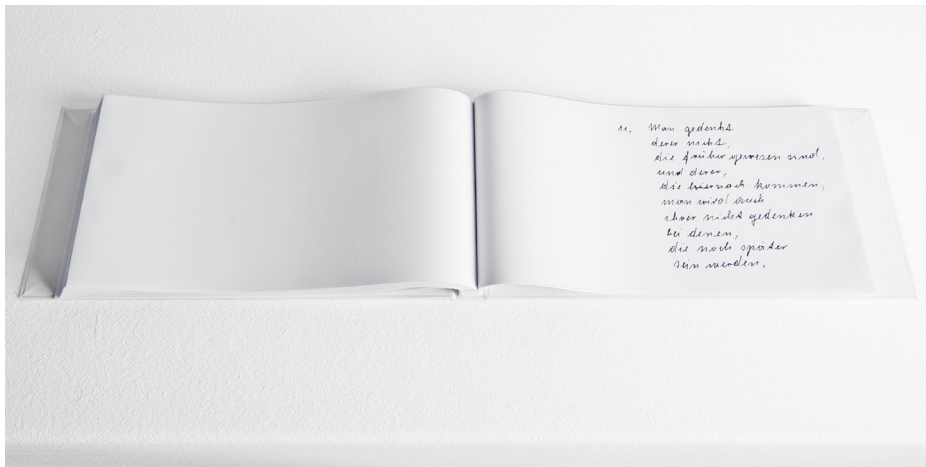 11, Man gedenkt
derer nicht,
die früher gewesen sind,
und derer,
die hiernach kommen,
man wird auch
ihrer nicht gedenken
bei denen,
die noch später
sein werden.